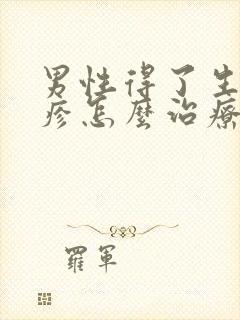 男性得了生
疹怎麽治療
羅軍